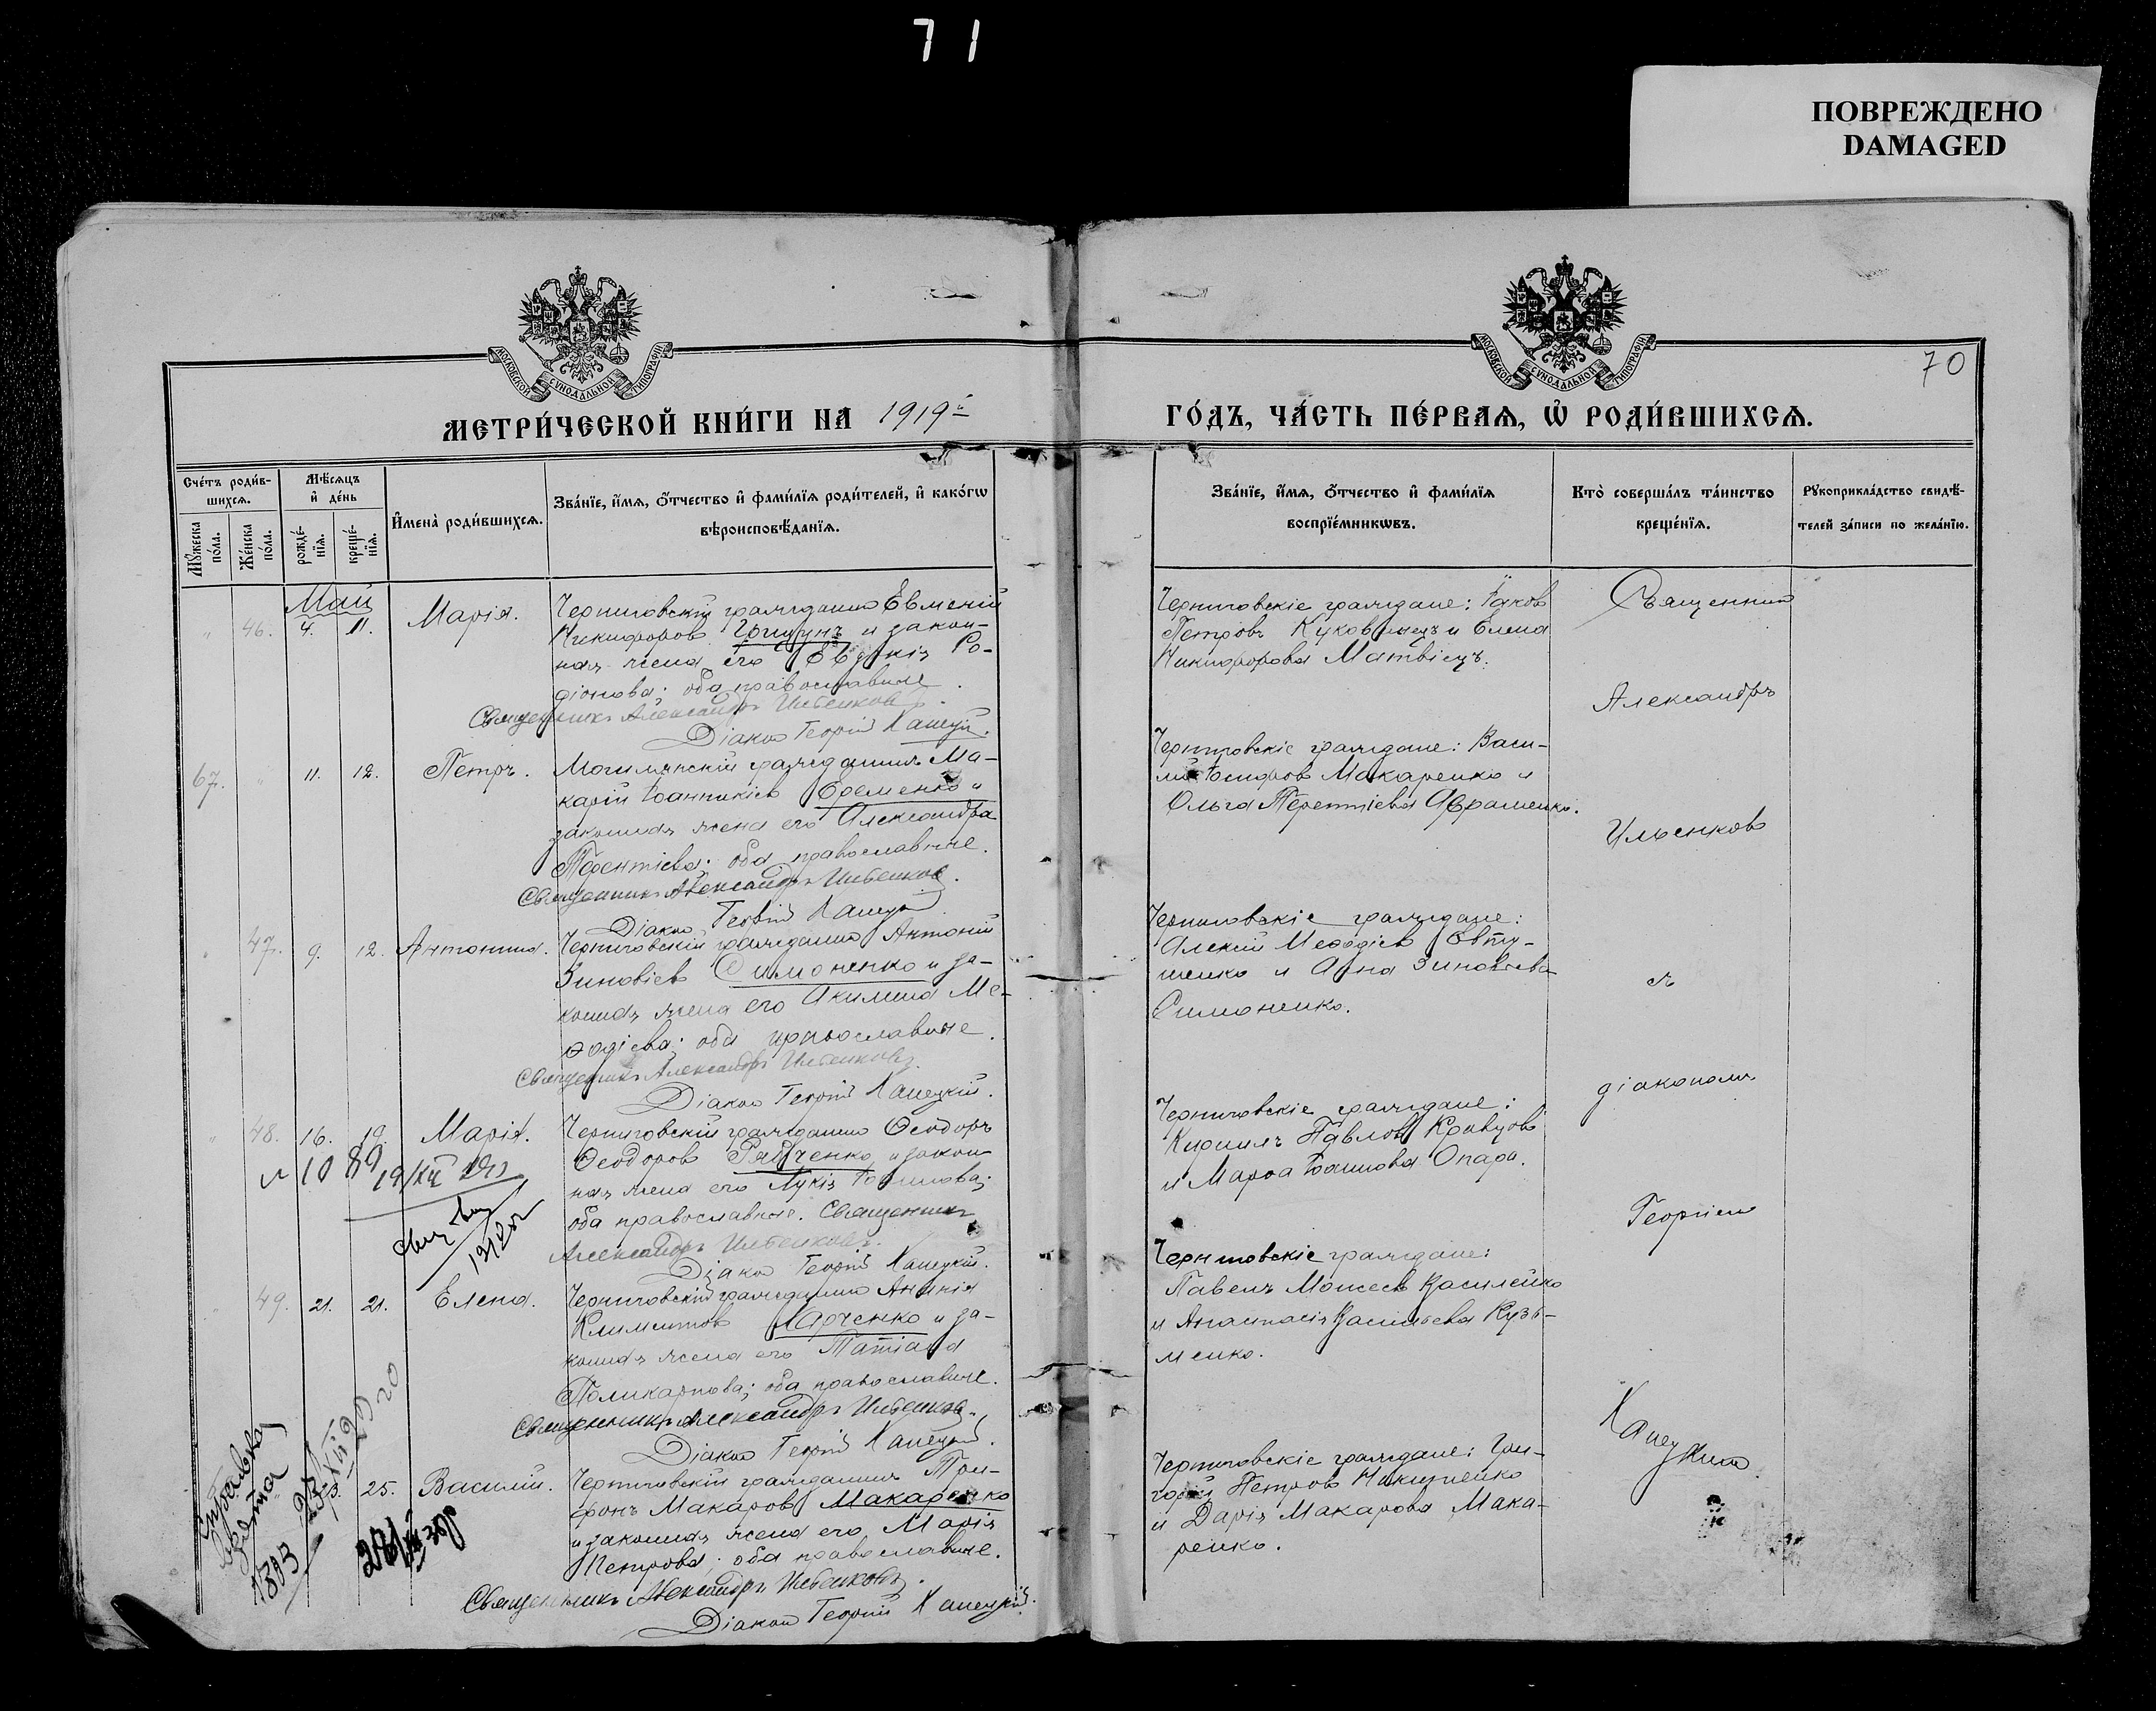 71
ПОВРЕЖДЕНО
DAMAGED
МОСКОВСКОЙ СѴНОДАЛЬНОЙ ТИПОГРАФІИ
МОСКОВСКОЙ СѴНОДАЛЬНОЙ ТИПОГРАФІИ
70
МЕТРИ́ЧЕСКОЙ КНИ́ГИ НА 1919й
ГО́ДЪ, ЧА́СТЬ ПЕ́РВАѦ, Ѡ҆ РОДИ́ВШИХСѦ.
Сче́тъ роди́в-
шихсѧ.
Мѣ́сѧцъ
и҆ де́нь
И҆мена̀ роди́вшихсѧ.
Зва́нїе, и҆́мѧ, ѻ҆́тчество и҆ фами́лїѧ роди́телей, и҆ како́гѡ
вѣроисповѣ́данїѧ.
Мꙋ́жеска
по́ла.
Же́нска
по́ла.
рожде́-
нїѧ.
креще́-
нїѧ.
Зва́нїе, и҆́мѧ, ѻ҆́тчество и҆ фами́лїѧ
воспрїе́мникѡвъ.
Кто̀ соверша́лъ та́инство
креще́нїѧ.
Рꙋкоприкла́дство свидѣ́-
телей за́писи по жела́нїю.
Май
" 46. 4. 11. Марія.
Черниговскій гражданин Евмений
Никифоров Гришунъ и закон-
ная жена его Евдокія Ро-
діонова; оба православные.
Священникъ Александръ Ильенков
Діакон Георгій Ханецкій.
Черниговскіе граждане: Іаков
Петровъ Куковинецъ и Елена
Никифорова Матвіецъ.
67. " 11. 12. Петръ.
Могилянскій гражданинъ Ма-
карій Іоанникіев Еременко и
законная жена его Александра
Терентіева; оба православные.
Священникъ Александръ Ильенков.
Діакон Георгій Ханецкій
Черниговскіе граждане: Васи-
лій Іосифов Макаренко и
Ольга Терентіева Авраменко.
" 47. 9. 12. Антонина.
Черниговскій гражданин Антоній
Зиновіев Симоненко и за-
конная жена его Акилина Ме-
ѳодіева; оба православные.
Священникъ Александръ Ильенковъ.
Діакон Георгій Ханецкій.
Черниговскіе граждане:
Алексій Меѳодіев Евту-
шенко и Анна Зиновіева
Симоненко.
" 48. 16. 19. Марія.
Черниговскій гражданин Ѳеодоръ
Ѳеодоров Рябченко и закон-
ная жена его Лукія Іоаннова;
оба православные. Священникъ
Александръ Ильенковъ.
Діакон Георгій Ханецкій.
Черниговскіе граждане:
Кириллъ Павлов Кравцов
и Марѳа Іоаннова Опара.
1089
19/XII
" 49. 21. 21. Елена.
Черниговскій гражданин Ананія
Климентов Марченко и за-
конная жена его Татіана
Поликарпова; оба православные.
Священникъ Александръ Ильенков.
Діакон Георгій Ханецкій.
Черниговскіе граждане:
Павелъ Моисеев Василенко
и Анастасія Васильева Кузь-
менко.
25. Василій.
Черниговскій гражданинъ Три-
фонъ Макаров Макаренко
и законная жена его Марія
Петрова; оба православные.
Священникъ Александръ Ильенковъ.
Діакон Георгій Ханецкій.
Черниговскіе граждане: Гри-
горій Петров Никитенко
и Дарія Макарова Мака-
ренко.
справка
взята
1303
Священник
Александръ
Ильенков
съ
діаконом
Георгіем
Ханецким.